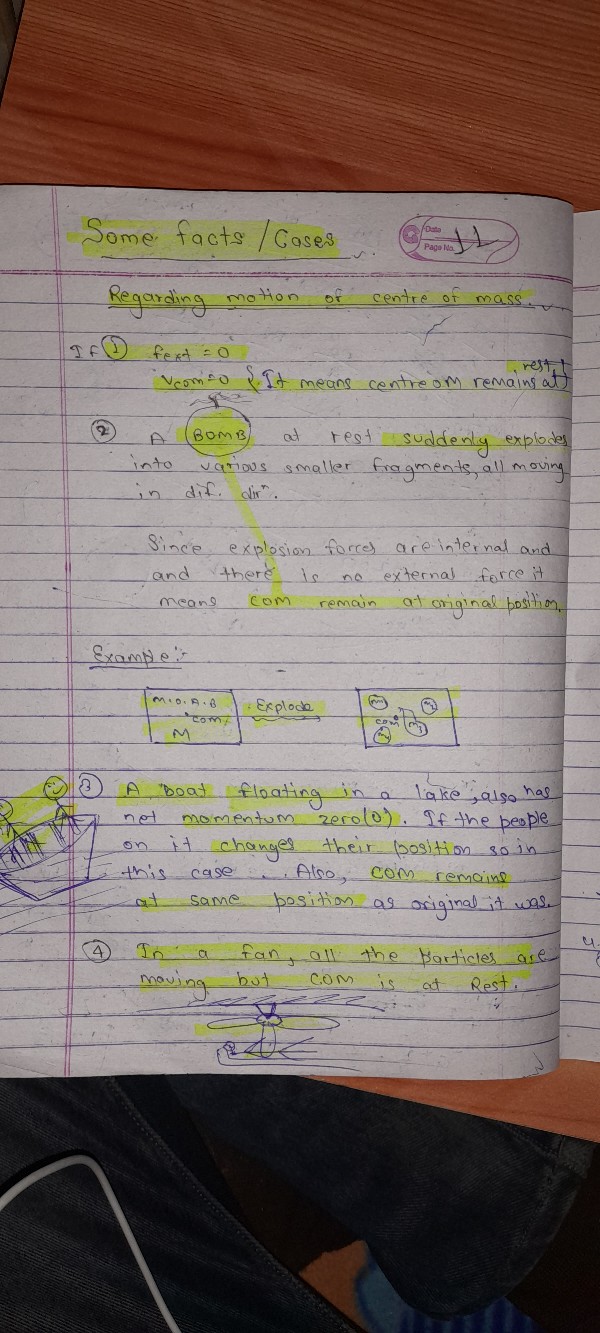 Some facts / Cases
Date
Page No. 11
Regarding motion of centre of mass.
If ① fext = 0
Vcom=0 { It means centre om remains at rest
② A BOMB at rest suddenly explodes
into various smaller fragments, all moving
in dif. dirⁿ.
Since explosion forces are internal and
and there is no external force it
means com remain at original position.
Example:-
M.O.A.B
com
M
Explode
com
③ A boat floating in a lake, also has
net momentum zero(0). If the people
on it changes their position so in
this case .. Also, COM remains
at same position as original it was.
④ In a fan, all the particles are
moving but COM is at Rest.